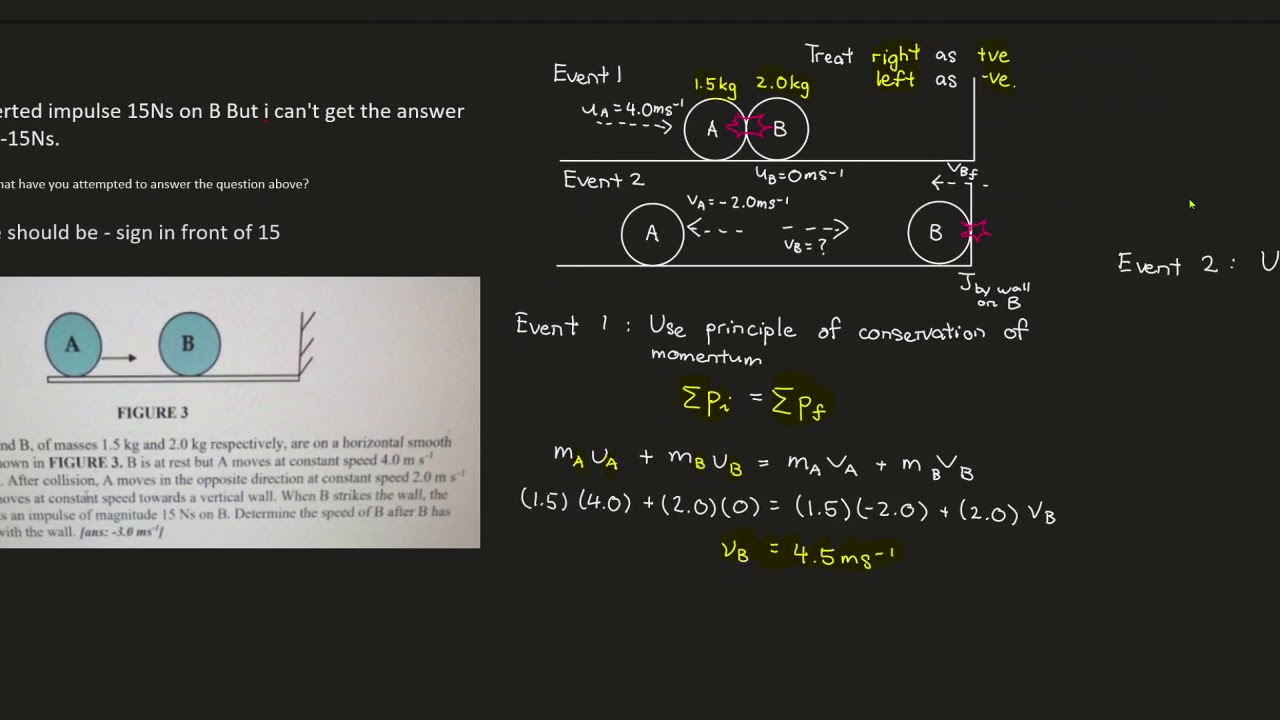 erted impulse 15Ns on B But i can't get the answer
-15Ns.
hat have you attempted to answer the question above?
should be - sign in front of 15
A
B
FIGURE 3
nd B, of masses 1.5 kg and 2.0 kg respectively, are on a horizontal smooth
own in FIGURE 3. B is at rest but A moves at constant speed 4.0 m s⁻¹
. After collision, A moves in the opposite direction at constant speed 2.0 m s⁻¹
noves at constant speed towards a vertical wall. When B strikes the wall, the
s an impulse of magnitude 15 Ns on B. Determine the speed of B after B has
with the wall. [ans: -3.0 ms⁻¹]
Treat right as +ve
left as -ve.
Event 1
1.5kg 2.0kg
u_A = 4.0ms⁻¹
A B
u_B = 0ms⁻¹
Event 2
v_Bf
v_A = -2.0ms⁻¹
A
v_B = ?
B
J by wall
on B
Event 1 : Use principle of conservation of
momentum
Σp_i = Σp_f
m_A u_A + m_B u_B = m_A v_A + m_B v_B
(1.5)(4.0) + (2.0)(0) = (1.5)(-2.0) + (2.0) v_B
v_B = 4.5ms⁻¹
Event 2 : U